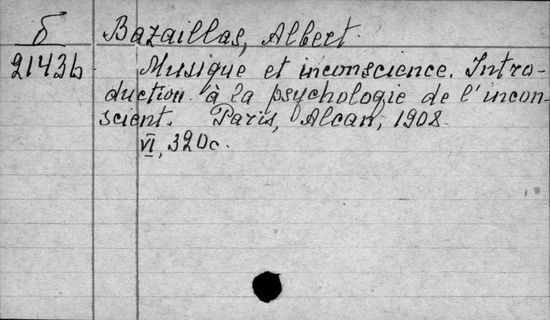 б Bazaillas, Albert.
21436 Musique et inconscience. Intro-
duction à la psychologie de l'incon-
scient. Paris, Alcan, 1908.
VI, 320c.